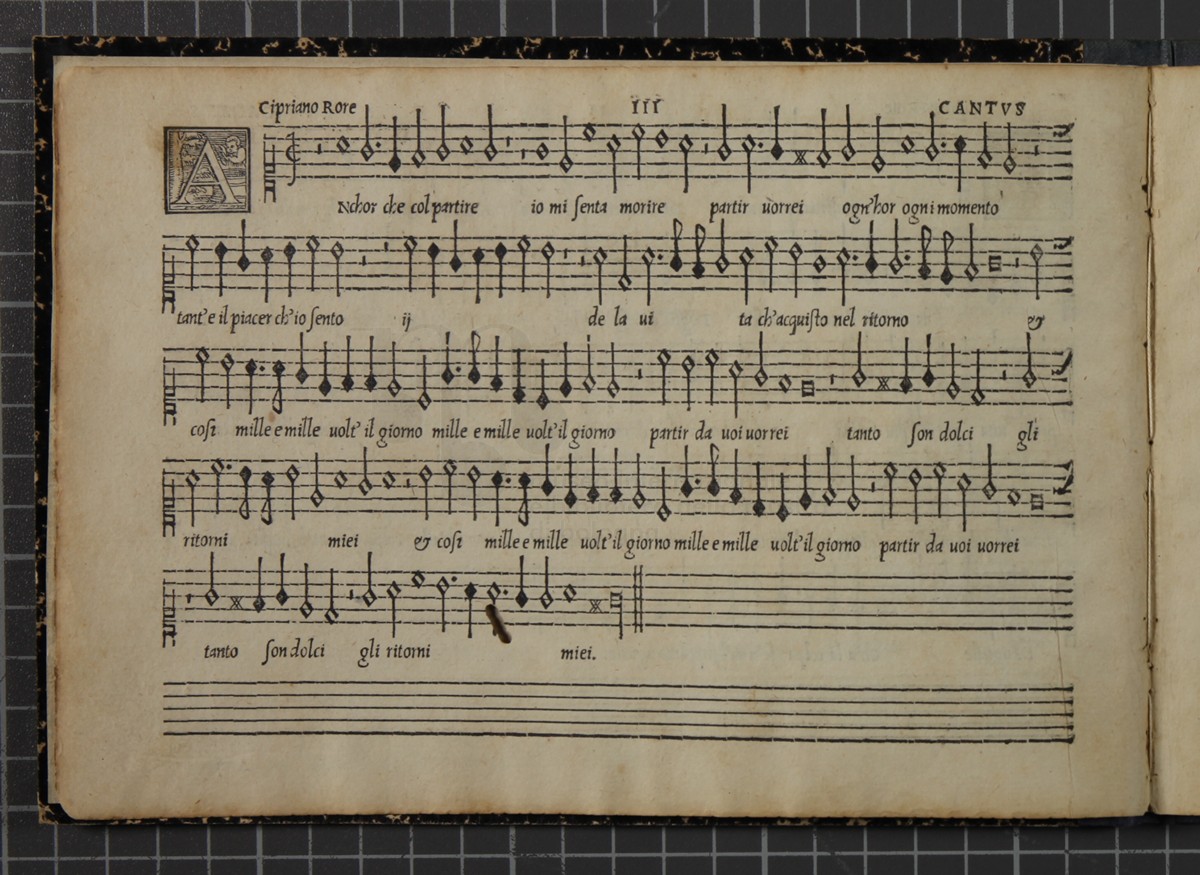 Cipriano Rore III CANTVS
ANchor che col partire io mi ſenta morire partir uorrei ogn'hor ogni momento
tant'e il piacer ch'io ſento ij de la ui ta ch'acquiſto nel ritorno &
coſi mille e mille uolt' il giorno mille e mille uolt' il giorno partir da uoi uorrei tanto ſon dolci gli
ritorni miei & coſi mille e mille uolt' il giorno mille e mille uolt' il giorno partir da uoi uorrei
tanto ſon dolci gli ritorni miei.